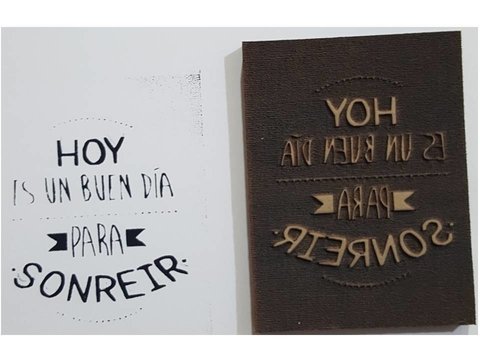 HOY
ES UN BUEN DÍA
PARA
SONREIR
HOY
ES UN BUEN DÍA
PARA
SONREIR